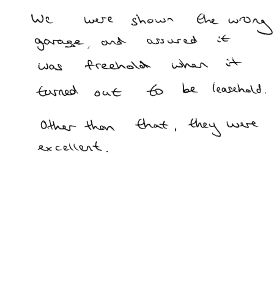 We were shown the wrong
garage, and assured it
was freehold when it
turned out to be leasehold.
Other than that, they were
excellent.